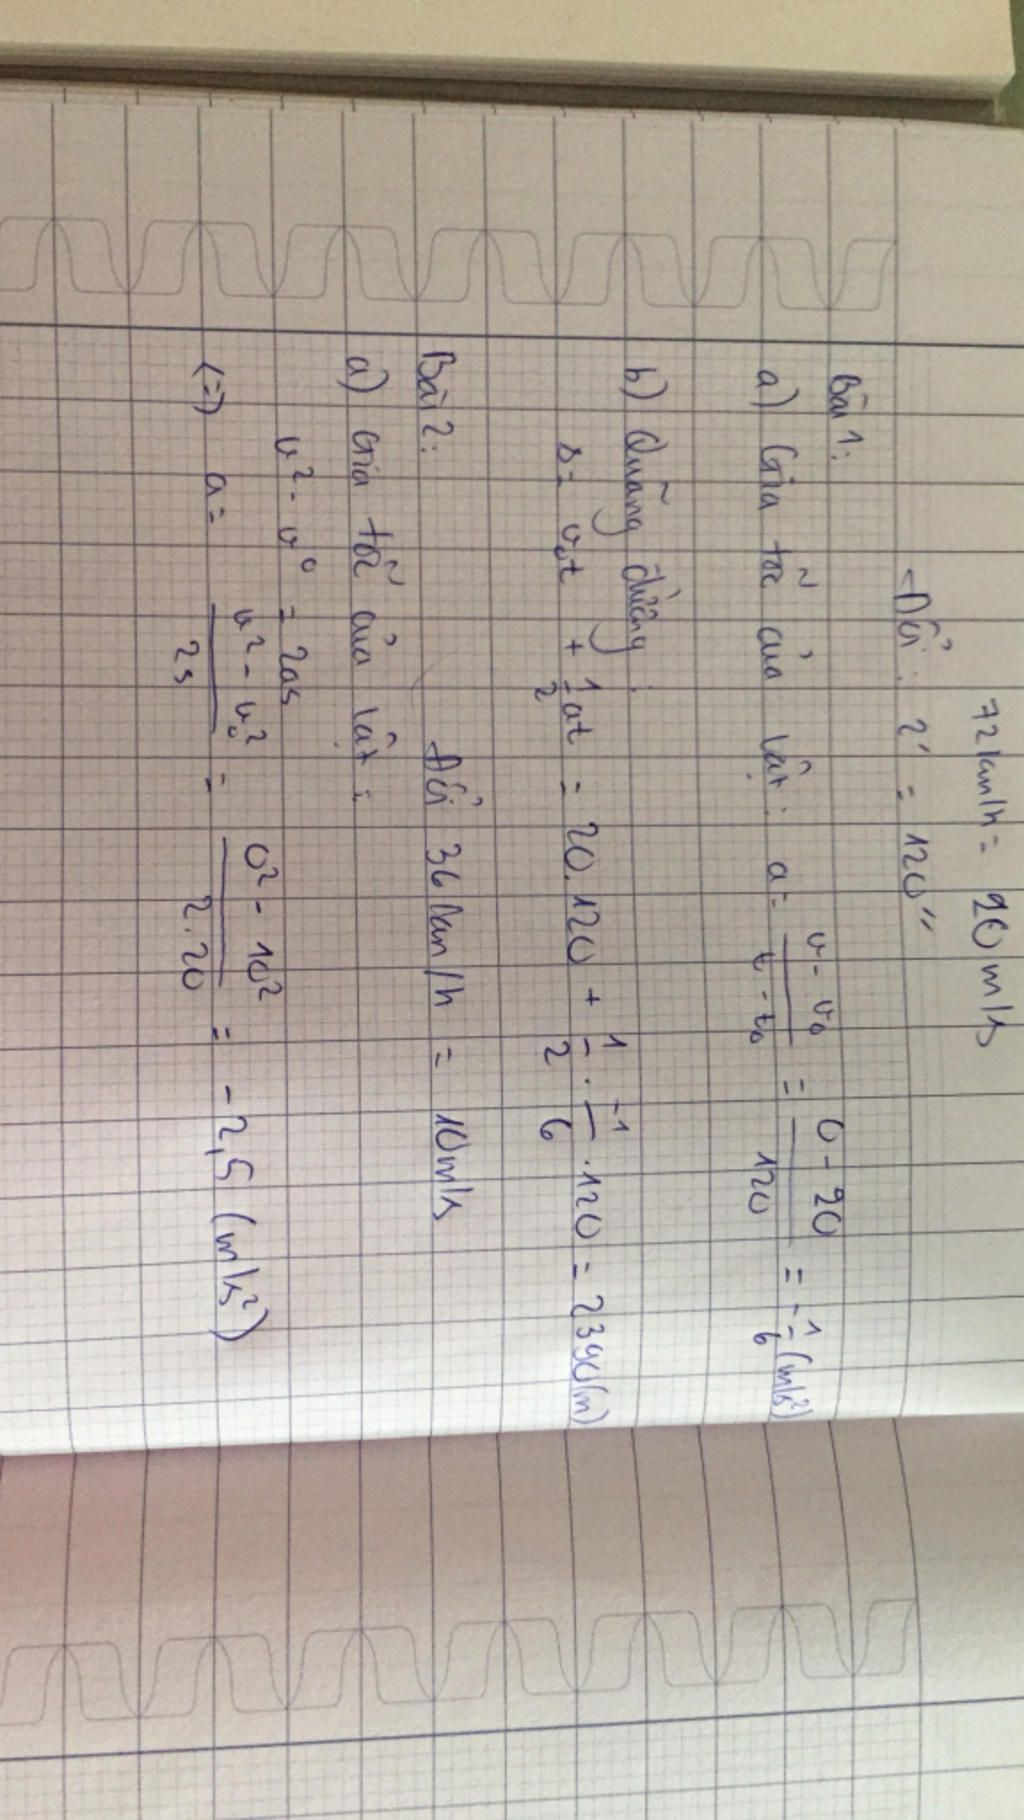 72km/h = 20m/s
Đổi: 2' = 120"
Bài 1:
a) Gia tốc của vật: a = \frac{v - v₀}{t - t₀} = \frac{0 - 20}{120} = -\frac{1}{6} (m/s²)
b) Quãng đường:
s = v₀t + \frac{1}{2}at = 20.120 + \frac{1}{2} . \frac{-1}{6} .120 = 2390(m)
Bài 2: Đổi 36km/h = 10m/s
a) Gia tốc của vật:
v² - v⁰ = 2as
(=) a = \frac{v² - v₀²}{2s} = \frac{0² - 10²}{2.20} = -2,5 (m/s²)